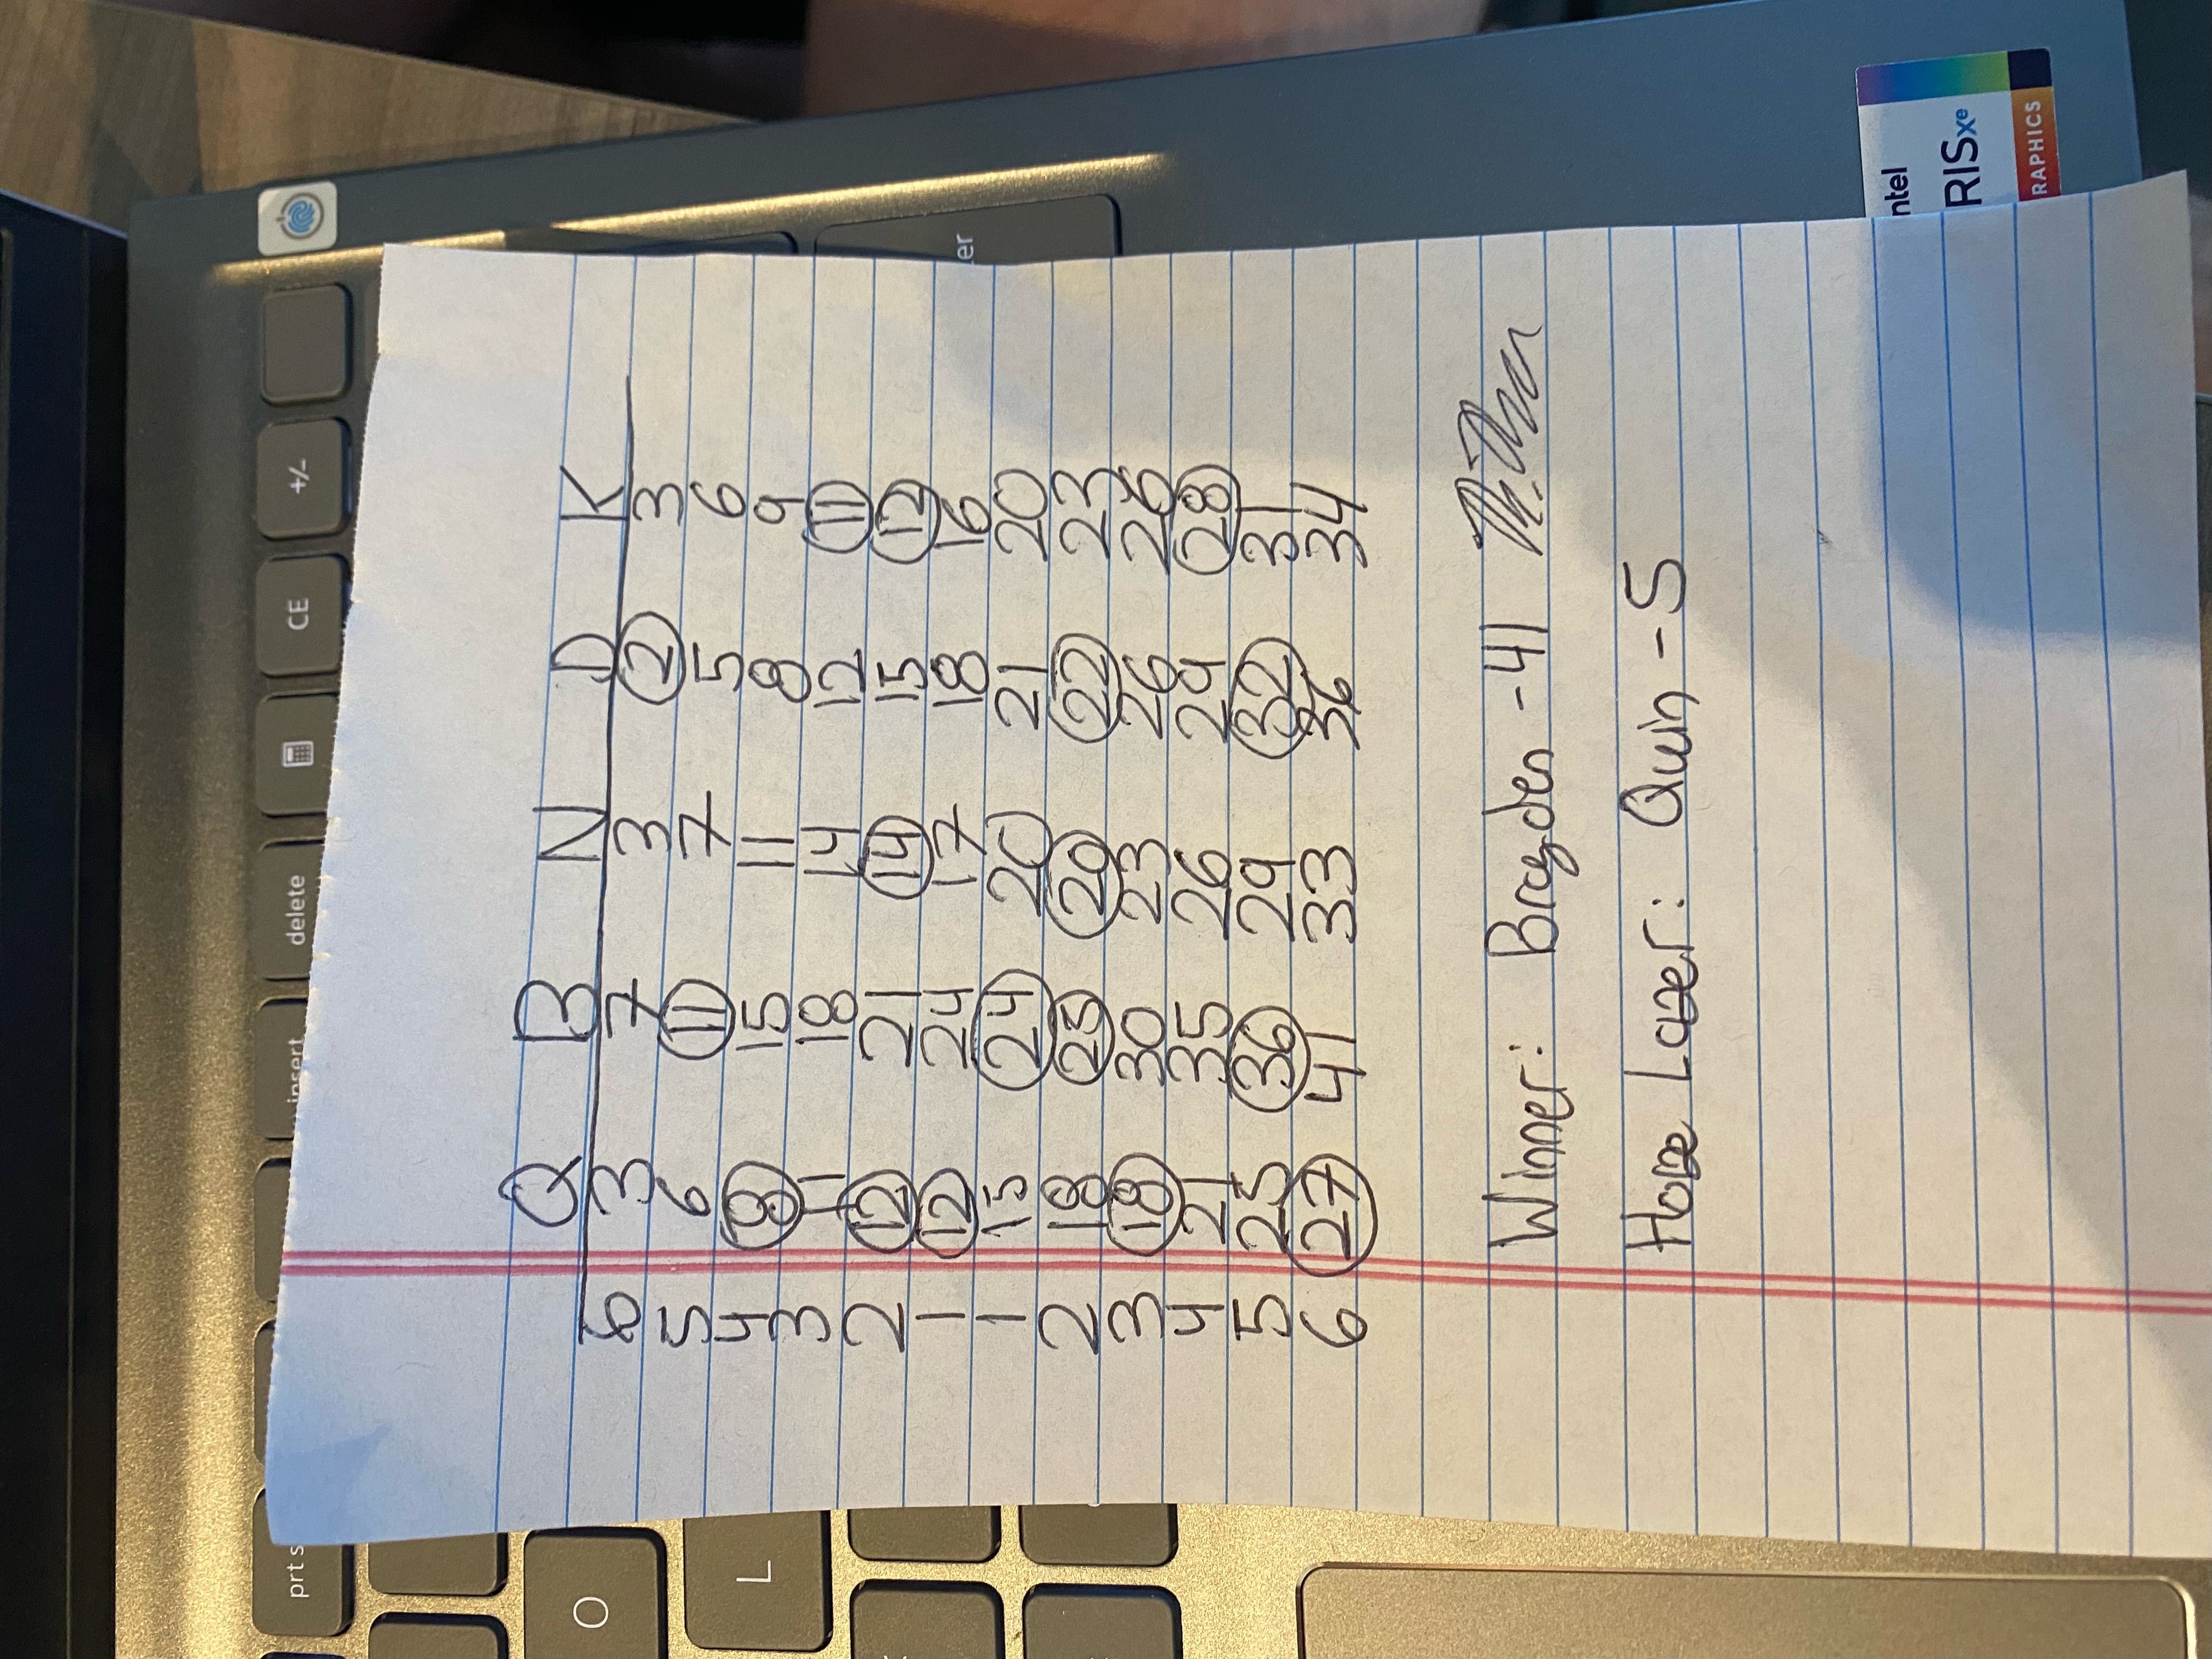 prt s insert delete CE +/-
O
L
er
Q B N D K
6 3 7 3 2 3
5 6 11 7 5 6
4 8 15 11 8 9
3 11 18 14 12 11
2 12 21 14 15 12
1 12 24 17 18 16
1 15 24 20 21 20
2 18 25 20 22 23
3 18 30 23 26 26
4 21 35 26 29 28
5 25 36 29 32 31
6 27 41 33 36 34
Winner: Brayden -41
Hoze Lazer: Quin -5
ntel
RIS xe
RAPHICS